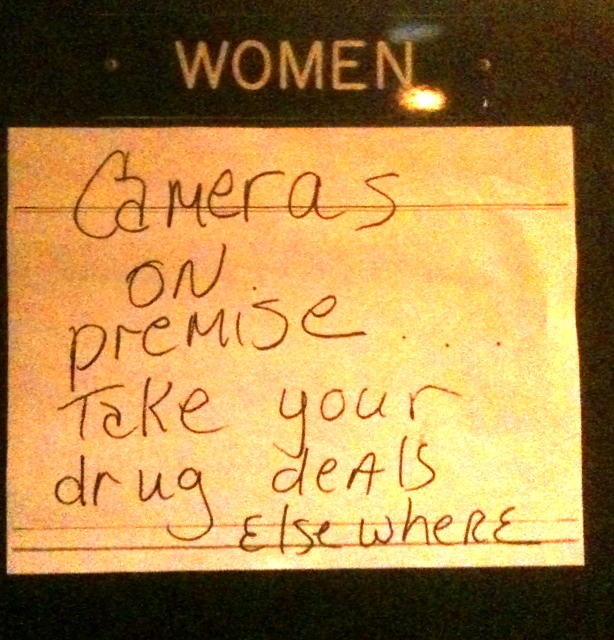 WOMEN
Cameras
ON
premise...
Take your
drug deals
Elsewhere